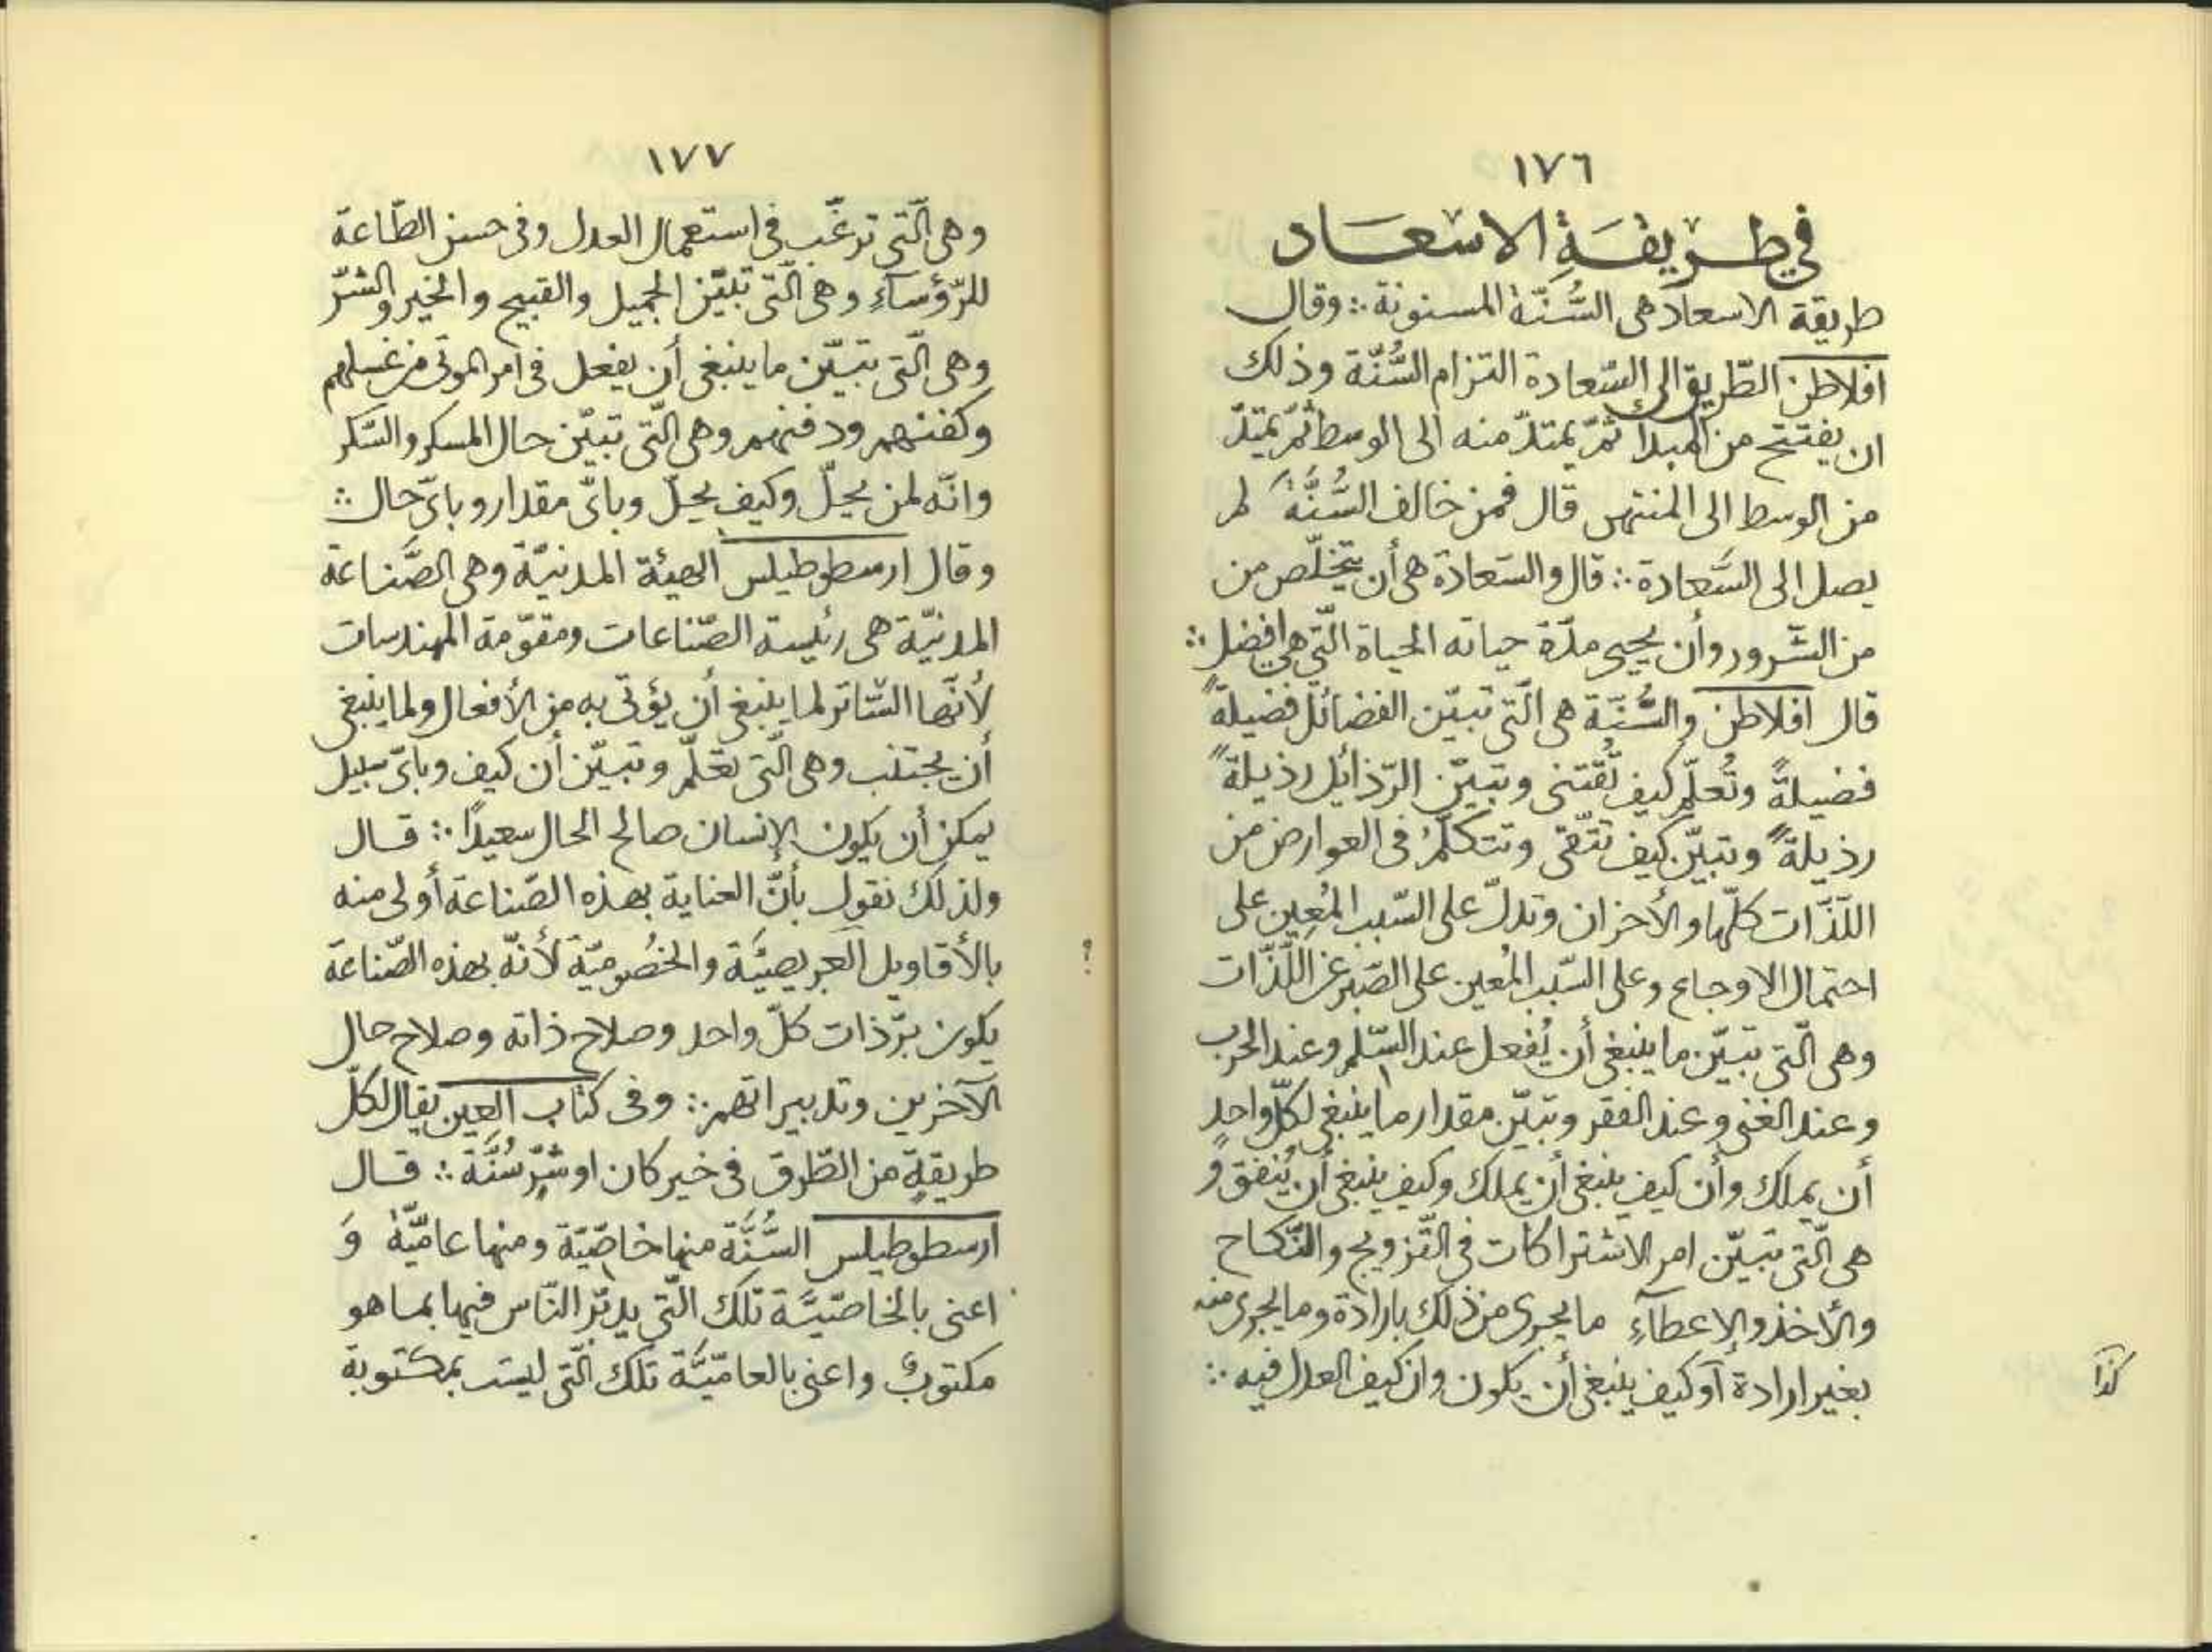 ١٧٦
في طريقة الاسعاد
طريقة الاسعاد هى السُّنّة المسنونة ∴ وقال
افلاطن الطّريق الى السّعادة التزام السُّنّة وذلك
ان يفتتح من المبدأ ثمّ يمتدّ منه الى الوسط ثمّ يمتدّ
من الوسط الى المنتهى قال فمن خالف السُّنَّةَ لم
يصل الى السَّعادة ∴ قال والسّعادة هى أن يتخلّص من
من الشّرور وأن يحيى مدّة حياته الحياة الّتى هى افضل ∴
قال افلاطن والسُّنّة هى الّتى تبيّن الفضائل فضيلةً
فضيلةً وتُعلّم كيف تُقتنى وتبيّن الرّذائل رذيلةً
رذيلةً وتبيّن كيف تتّقى وتتكلّمُ فى العوارض من
اللّذّات كلّها والأحزان وتدلّ على السّبب المُعِين على
احتمال الاوجاع وعلى السّبب المُعين على الصّبر عن اللّذّات
وهى الّتى تبيّن ما ينبغى أن يُفعل عند السّلم وعند الحرب
وعند الغنى وعند الفقر وتبيّن مقدار ما ينبغى لكلّ واحدٍ
أن يملك وأن كيف ينبغى أن يملك وكيف ينبغى أن يُنفق وَ
هى الّتى تبيّن امر الاشتراكات فى التّزويج والنّكاح
والأخذ والإعطآءِ ما يجرى من ذلك بارادة وما يجرى منه
بغير ارادة أو كيف ينبغى أن يكون وان كيف العدل فيه ∴
كذا
١٧٧
وهى الّتى ترغّب فى استعمال العدل وفى حسن الطّاعة
للرّؤسآءِ وهى الّتى تبيّن الجميل والقبيح والخير والشّرّ
وهى الّتى تبيّن ما ينبغى أن يفعل فى امر الموتى من غسلهم
وكفنهم ودفنهم وهى الّتى تبيّن حال المسكر والسّكر
وانّه لمن يحلّ وكيف يحلّ وباىّ مقدار وباىّ حال ∴
وقال ارسطوطيلس الهيئة المدنيّة وهى الصّناعة
المدنيّة هى رئيسة الصّناعات ومقوّمة المهندسات
لأنّها السّاتر لما ينبغى أن يؤتى به من الأفعال ولما ينبغى
أن يجتنب وهى الّتى تعلّم وتبيّن أن كيف وباىّ سبيل
يمكن أن يكون الإنسان صالح الحال سعيدًا ∴ قال
ولذلك نقول بأنّ العناية بهذه الصّناعة أولى منه
بالأقاويل العريصيَّة والخُصُوميّة لأنّه بهذه الصّناعة
؟
يكون برّ ذات كلّ واحد وصلاح ذاته وصلاح حال
الآخرين وتدبيراتهم ∴ وفى كتاب العين يقال لكلّ
طريقةٍ من الطّرق فى خير كان او شرّ سُنَّة ∴ قال
ارسطوطيلس السُّنَّة منها خاصّيّة ومنها عاميّة وَ
اعنى بالخاصّيّة تلك الّتى يدبّر النّاس فيها بما هو
مكتوبٌ واعنى بالعاميّة تلك الّتى ليست بمكتوبة